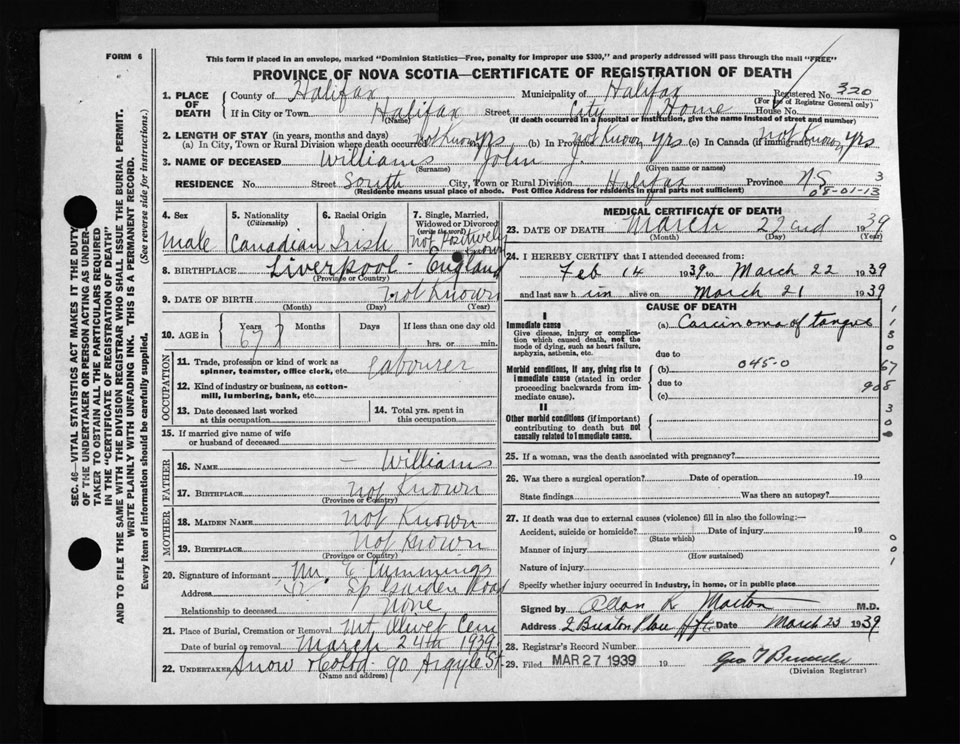 FORM 6
This form if placed in an envelope, marked "Dominion Statistics—Free, penalty for improper use $300," and properly addressed will pass through the mail "FREE"
PROVINCE OF NOVA SCOTIA—CERTIFICATE OF REGISTRATION OF DEATH
1. PLACE OF DEATH County of Halifax Municipality of Halifax Registered No. 320
(For use of Registrar General only)
If in City or Town Halifax Street City Home House No.
(Name) (If death occurred in a hospital or institution, give the name instead of street and number)
2. LENGTH OF STAY (in years, months and days)
(a) In City, Town or Rural Division where death occurred Not Known yrs (b) In Province Not Known yrs (c) In Canada (if immigrant) Not Known yrs
3. NAME OF DECEASED Williams John J.
(Surname) (Given name or names)
RESIDENCE No. Street South City, Town or Rural Division Halifax Province N.S 3
(Residence means usual place of abode. Post Office Address for residents in rural parts not sufficient) 08-01-13
4. Sex 5. Nationality (Citizenship) 6. Racial Origin 7. Single, Married, Widowed or Divorced (write the word)
Male Canadian Irish Not Positively Known
8. BIRTHPLACE Liverpool - England
(Province or Country)
9. DATE OF BIRTH Not Known
(Month) (Day) (Year)
10. AGE in Years Months Days If less than one day old
67 hrs. or min.
OCCUPATION
11. Trade, profession or kind of work as spinner, teamster, office clerk, etc. Labourer
12. Kind of industry or business, as cotton-mill, lumbering, bank, etc.
13. Date deceased last worked at this occupation 14. Total yrs. spent in this occupation
15. If married give name of wife or husband of deceased
FATHER
16. NAME — Williams
17. BIRTHPLACE Not Known
(Province or Country)
MOTHER
18. MAIDEN NAME Not Known
19. BIRTHPLACE Not Known
(Province or Country)
20. Signature of informant Mr. E Cummings
Address Sp Garden Road
Relationship to deceased None
21. Place of Burial, Cremation or Removal Mt Olivet Cem
Date of burial or removal March 24th 1939
22. UNDERTAKER Snow & Co Ltd - 90 Argyle St
(Name and address)
MEDICAL CERTIFICATE OF DEATH
23. DATE OF DEATH March 22nd 1939
(Month) (Day) (Year)
24. I HEREBY CERTIFY that I attended deceased from:
Feb 14 1939 to March 22 1939
and last saw him alive on March 21 1939
CAUSE OF DEATH
I
Immediate cause (a) Carcinoma of tongue
Give disease, injury or complication which caused death, not the mode of dying, such as heart failure, asphyxia, asthenia, etc.
due to
Morbid conditions, if any, giving rise to immediate cause (stated in order proceeding backwards from immediate cause). (b) 045-0
due to
(c)
67
908
II
Other morbid conditions (if important) contributing to death but not causally related to immediate cause.
25. If a woman, was the death associated with pregnancy?
26. Was there a surgical operation? Date of operation 19
State findings Was there an autopsy?
27. If death was due to external causes (violence) fill in also the following:—
Accident, suicide or homicide? Date of injury 19
(State which)
Manner of injury
(How sustained)
Nature of injury
Specify whether injury occurred in industry, in home, or in public place
Signed by Allan R Morton M.D.
Address 2 Breaton Place Hfx Date March 23 1939
28. Registrar's Record Number
29. Filed MAR 27 1939 19
(Division Registrar)
SEC. 46—VITAL STATISTICS ACT MAKES IT THE DUTY
OF THE UNDERTAKER OR PERSON ACTING AS UNDERTAKER TO OBTAIN ALL THE PARTICULARS REQUIRED
IN THE "CERTIFICATE OF REGISTRATION OF DEATH"
AND TO FILE THE SAME WITH THE DIVISION REGISTRAR WHO SHALL ISSUE THE BURIAL PERMIT.
WRITE PLAINLY WITH UNFADING INK. THIS IS A PERMANENT RECORD.
Every item of information should be carefully supplied. (See reverse side for instructions.)